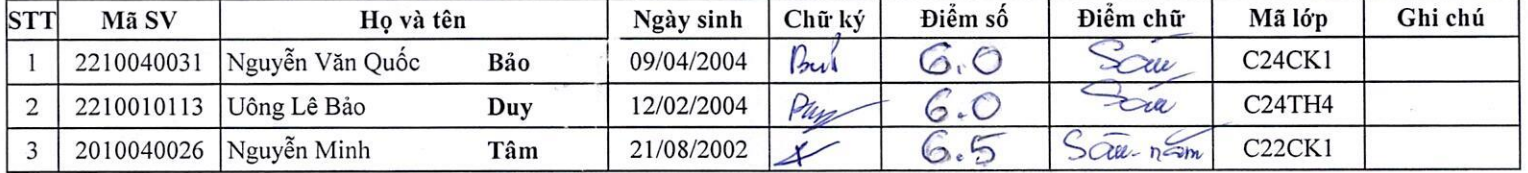 STT Mã SV Họ và tên Ngày sinh Chữ ký Điểm số Điểm chữ Mã lớp Ghi chú
1 2210040031 Nguyễn Văn Quốc Bảo 09/04/2004 6.0 Sáu C24CK1
2 2210010113 Uông Lê Bảo Duy 12/02/2004 6.0 Sáu C24TH4
3 2010040026 Nguyễn Minh Tâm 21/08/2002 6.5 Sáu - năm C22CK1